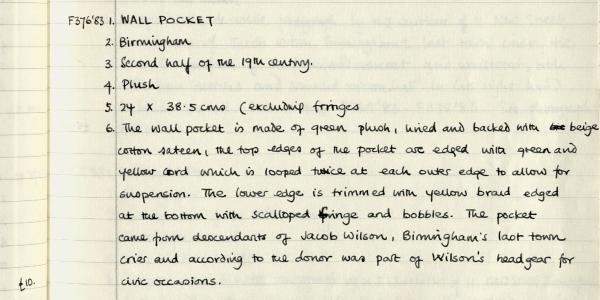 F376'83 1. WALL POCKET
2. Birmingham
3. Second half of the 19th century.
4. Plush
5. 24 x 38.5 cms (excluding fringes
6. The wall pocket is made of green plush, lined and backed with beige
cotton sateen, the top edges of the pocket are edged with green and
yellow cord which is looped twice at each outer edge to allow for
suspension. The lower edge is trimmed with yellow braid edged
at the bottom with scalloped fringe and bobbles. The pocket
came from descendants of Jacob Wilson, Birmingham's last town
crier and according to the donor was part of Wilson's headgear for
£10. civic occasions.